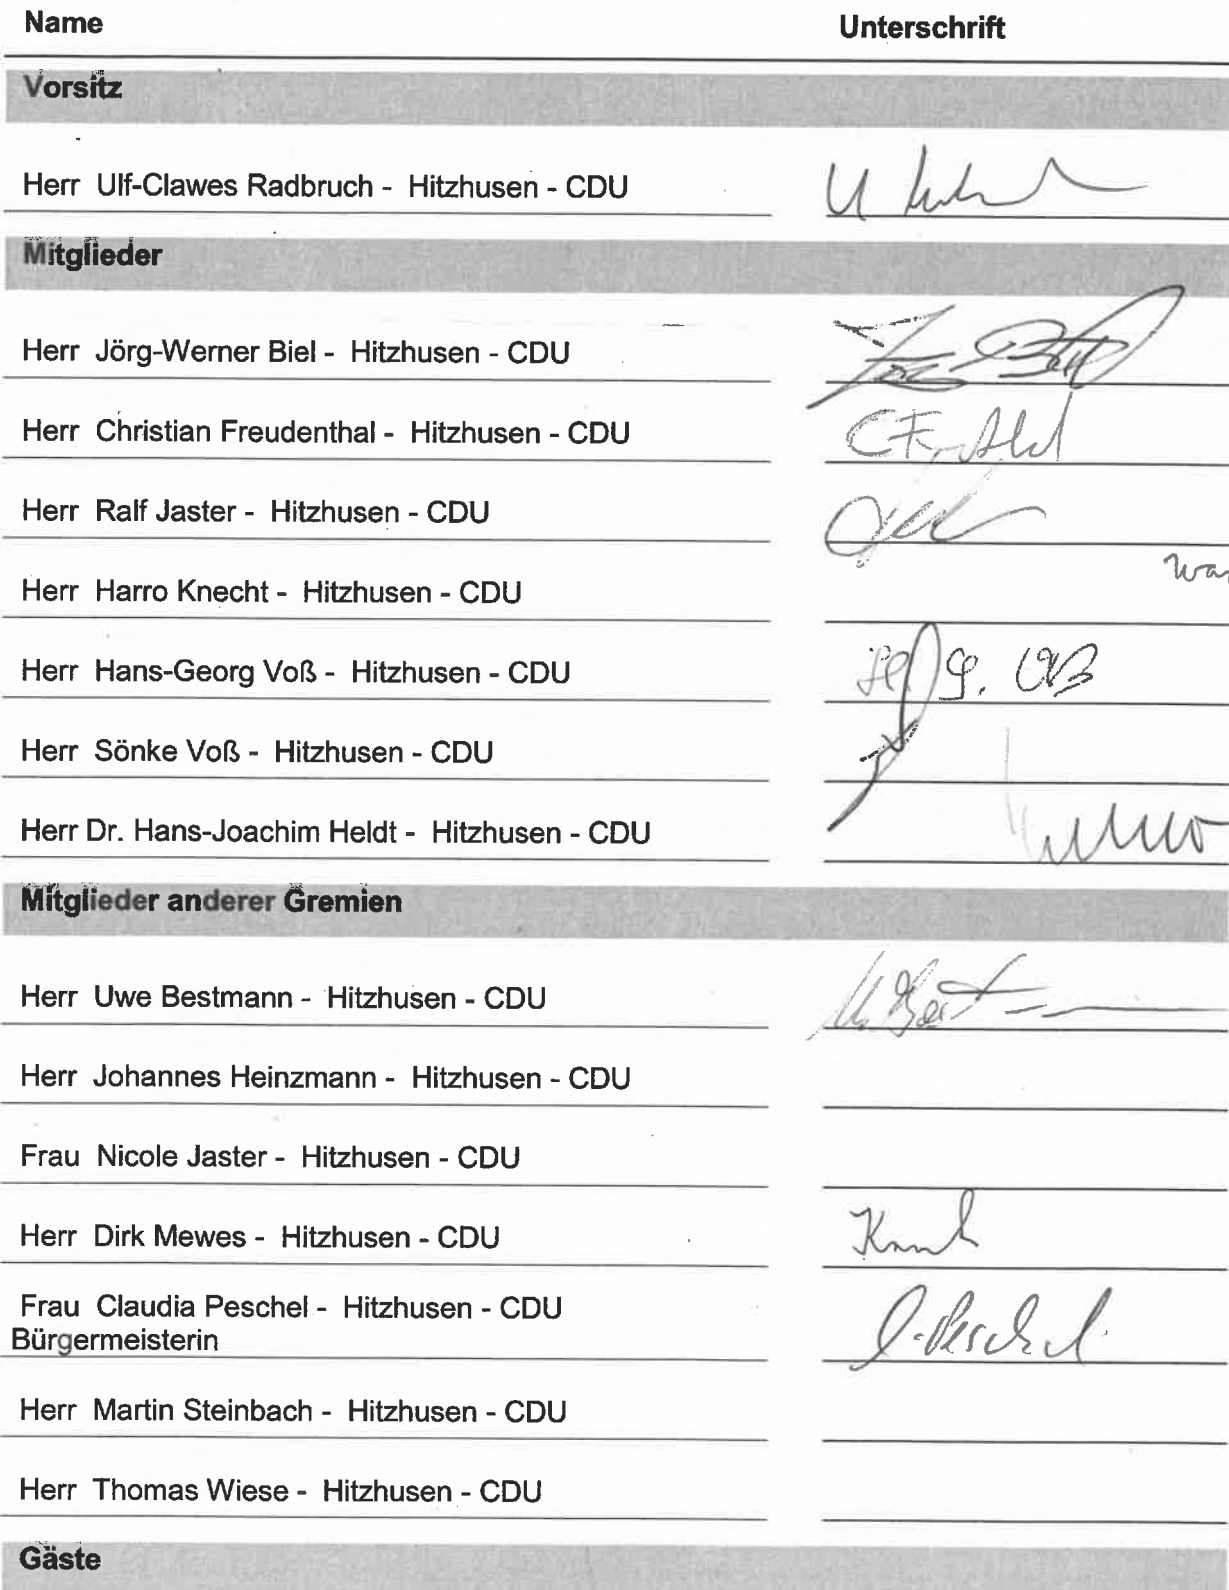 Name Unterschrift
Vorsitz
Herr Ulf-Clawes Radbruch - Hitzhusen - CDU
Mitglieder
Herr Jörg-Werner Biel - Hitzhusen - CDU
Herr Christian Freudenthal - Hitzhusen - CDU
Herr Ralf Jaster - Hitzhusen - CDU
Herr Harro Knecht - Hitzhusen - CDU
Herr Hans-Georg Voß - Hitzhusen - CDU
Herr Sönke Voß - Hitzhusen - CDU
Herr Dr. Hans-Joachim Heldt - Hitzhusen - CDU
Mitglieder anderer Gremien
Herr Uwe Bestmann - Hitzhusen - CDU
Herr Johannes Heinzmann - Hitzhusen - CDU
Frau Nicole Jaster - Hitzhusen - CDU
Herr Dirk Mewes - Hitzhusen - CDU
Frau Claudia Peschel - Hitzhusen - CDU
Bürgermeisterin
Herr Martin Steinbach - Hitzhusen - CDU
Herr Thomas Wiese - Hitzhusen - CDU
Gäste